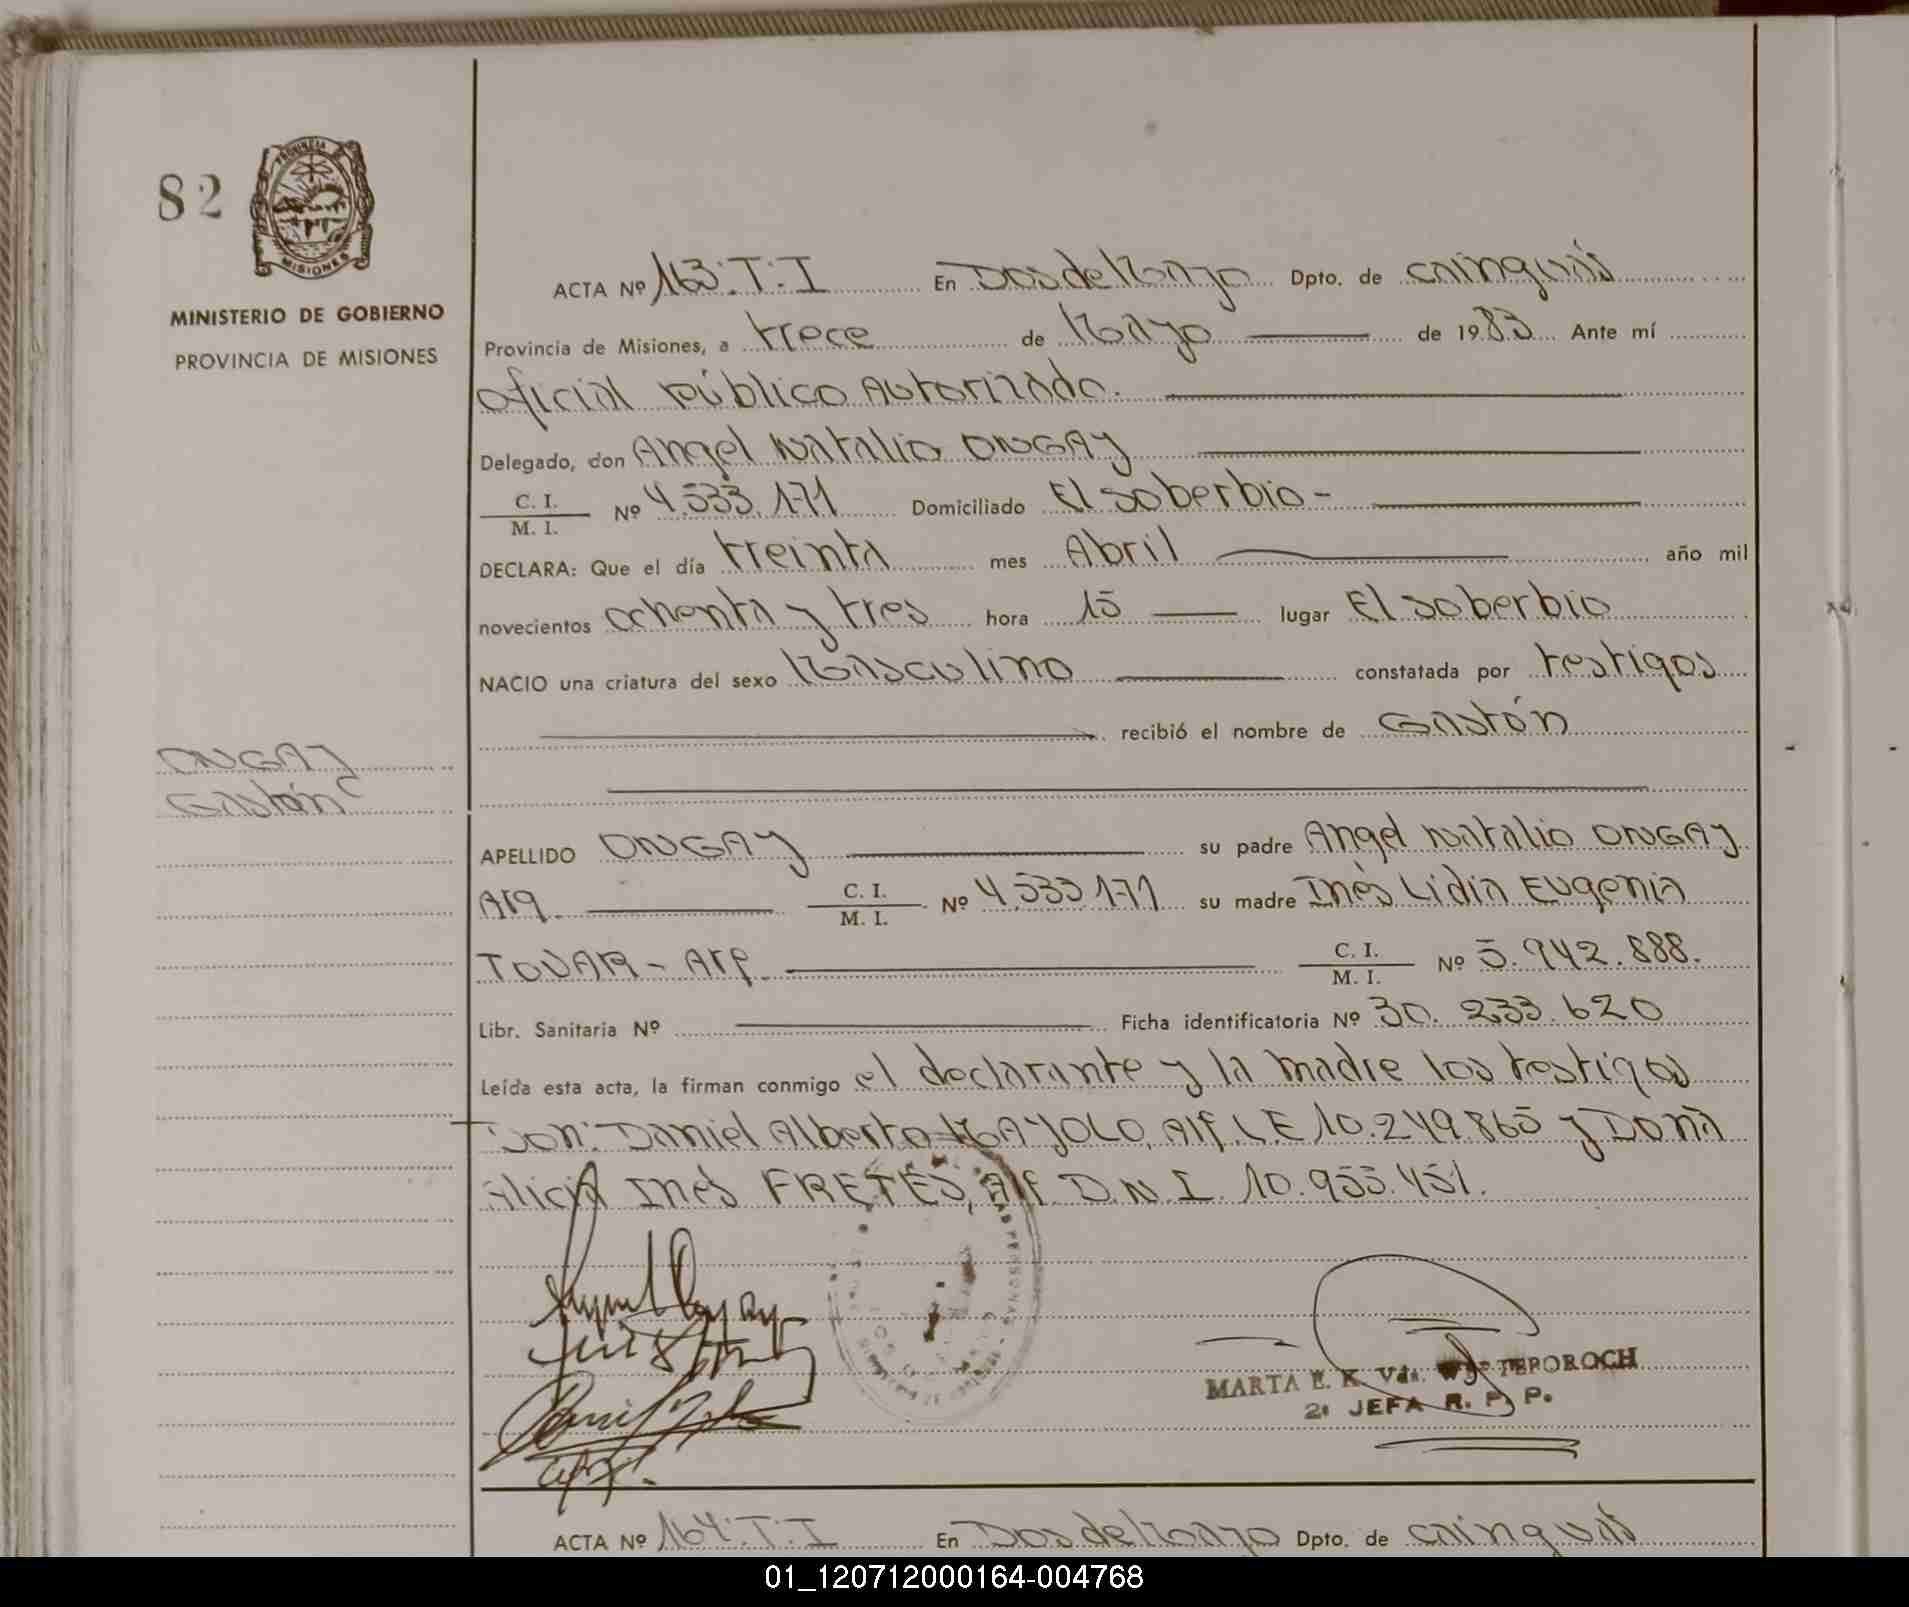 82
PROVINCIA DE
MISIONES
MINISTERIO DE GOBIERNO
PROVINCIA DE MISIONES
ACTA Nº 163. T. I En Dos de Mayo Dpto. de Cainguás
Provincia de Misiones, a trece de Mayo de 1983 Ante mí
Oficial Público Autorizado.
Delegado, don Angel Natalio ONGAY
C. I. / M. I. Nº 4.533.171 Domiciliado El Soberbio -
DECLARA: Que el día treinta mes Abril año mil
novecientos ochenta y tres hora 15 lugar El Soberbio
NACIO una criatura del sexo Masculino constatada por testigos
recibió el nombre de Gastón
ONGAY
Gastón
APELLIDO ONGAY su padre Angel Natalio ONGAY
Arg. C. I. / M. I. Nº 4.533.171 su madre Inés Lidia Eugenia
TOVAR - Arg. C. I. / M. I. Nº 5.942.888.
Libr. Sanitaria Nº Ficha identificatoria Nº 30.233.620
Leída esta acta, la firman conmigo el declarante y la madre los testigos
Don: Daniel Alberto MAYOLO, Alf. L.E 10.249.865 y Doña
Alicia Inés FRETES, Alf. D.N.I. 10.955.451.
MARTA E. K. Vda. TEPOROCH
2ª JEFA R. P. P.
ACTA Nº 164. T. I En Dos de Mayo Dpto. de Cainguás
01_120712000164-004768